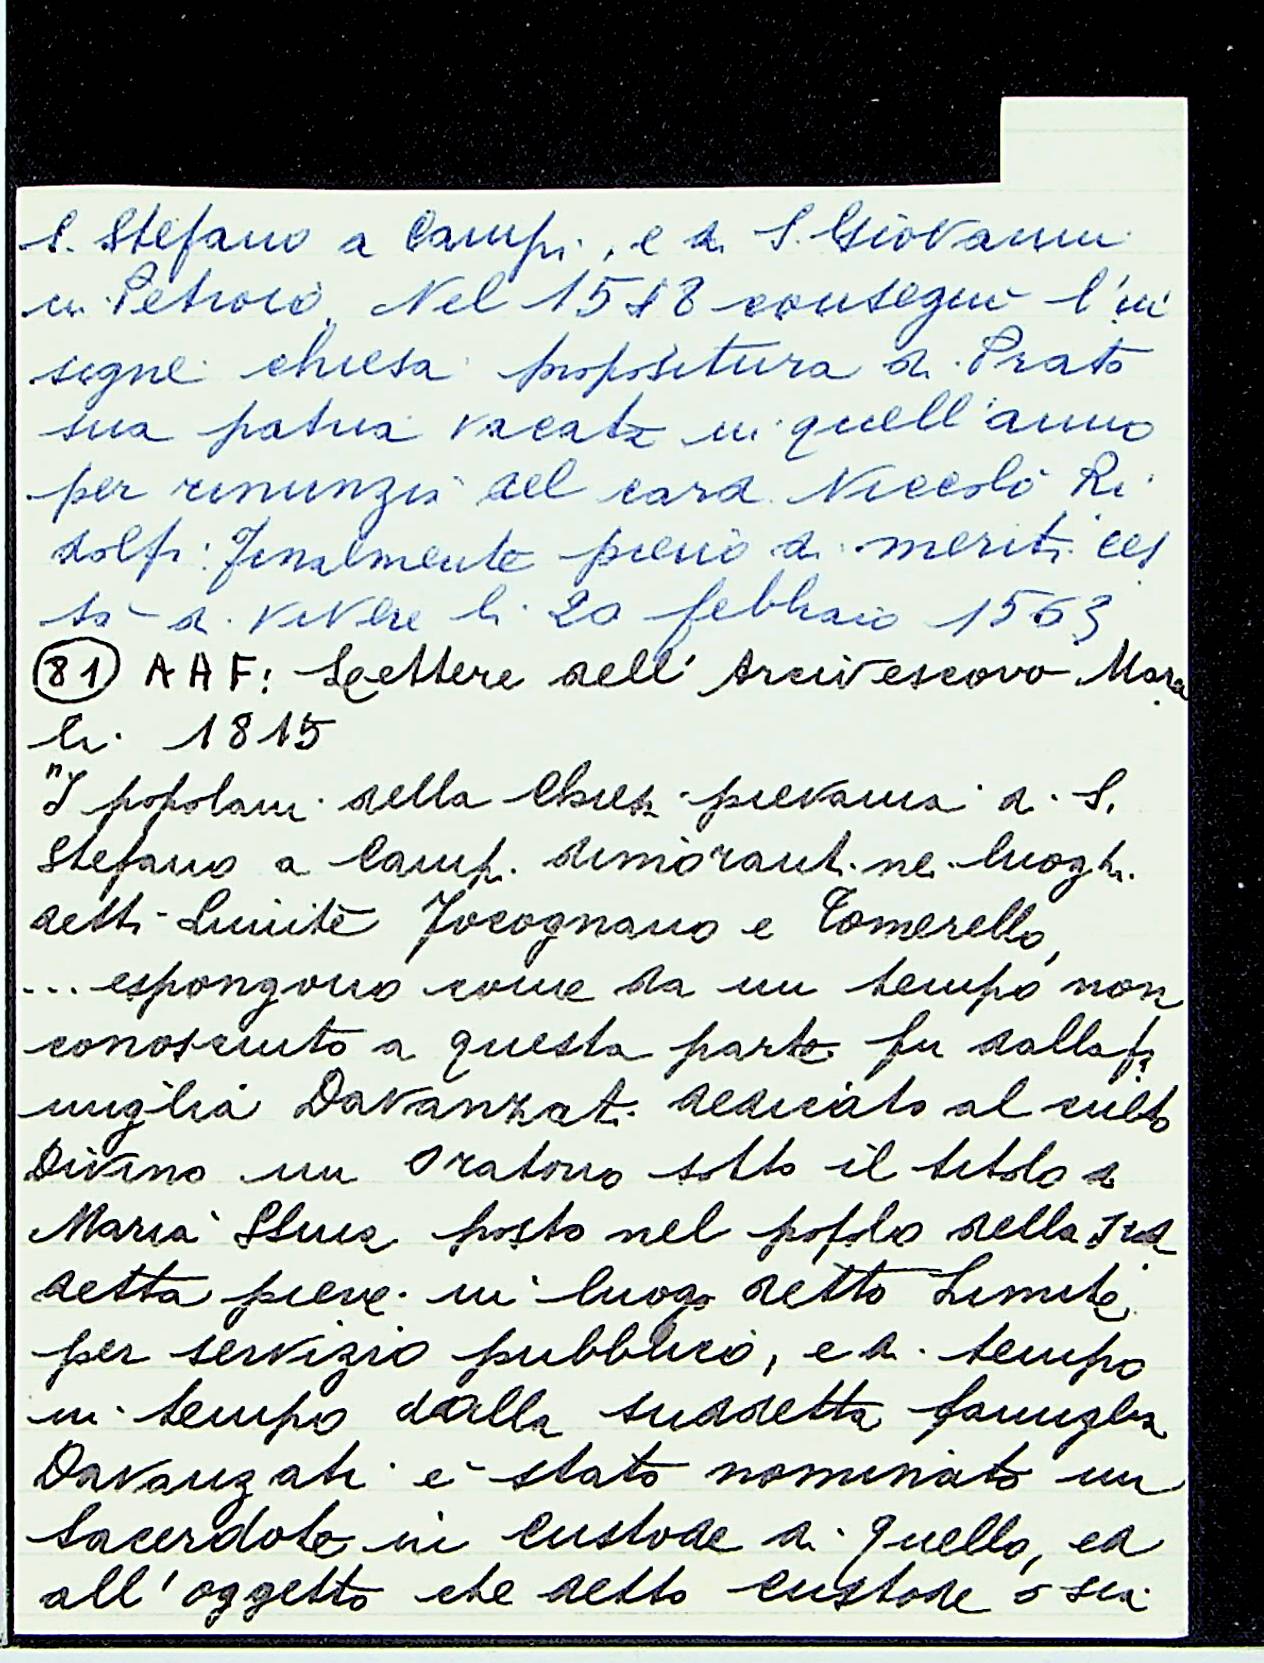 S. Stefano a Campi, e di S. Giovanni
in Petroio. Nel 1548 conseguì l'in
signe chiesa propositura di Prato
sua patria vacata in quell'anno
per renunzia del card. Niccolò Ri
dolfi: Finalmente pieno di meriti ces
sò di vivere li 20 febbraio 1563
(81) AAF: Lettere dell'Arcivescovo Mora
li. 1815
"I popolani della Chiesa pievania di S.
Stefano a Campi dimoranti nei luoghi
detti Limite Focognano e Tomerello,
... espongono come da un tempo non
conosciuto a questa parte fu dalla fa
miglia Davanzati dedicato al culto
Divino un Oratorio sotto il titolo di
Maria SSma posto nel popolo della sud
detta pieve in luogo detto Limite,
per servizio pubblico, e di tempo
in tempo dalla suddetta famiglia
Davanzati è stato nominato un
Sacerdote in Custode di quello, ed
all'oggetto che detto Custode o sia